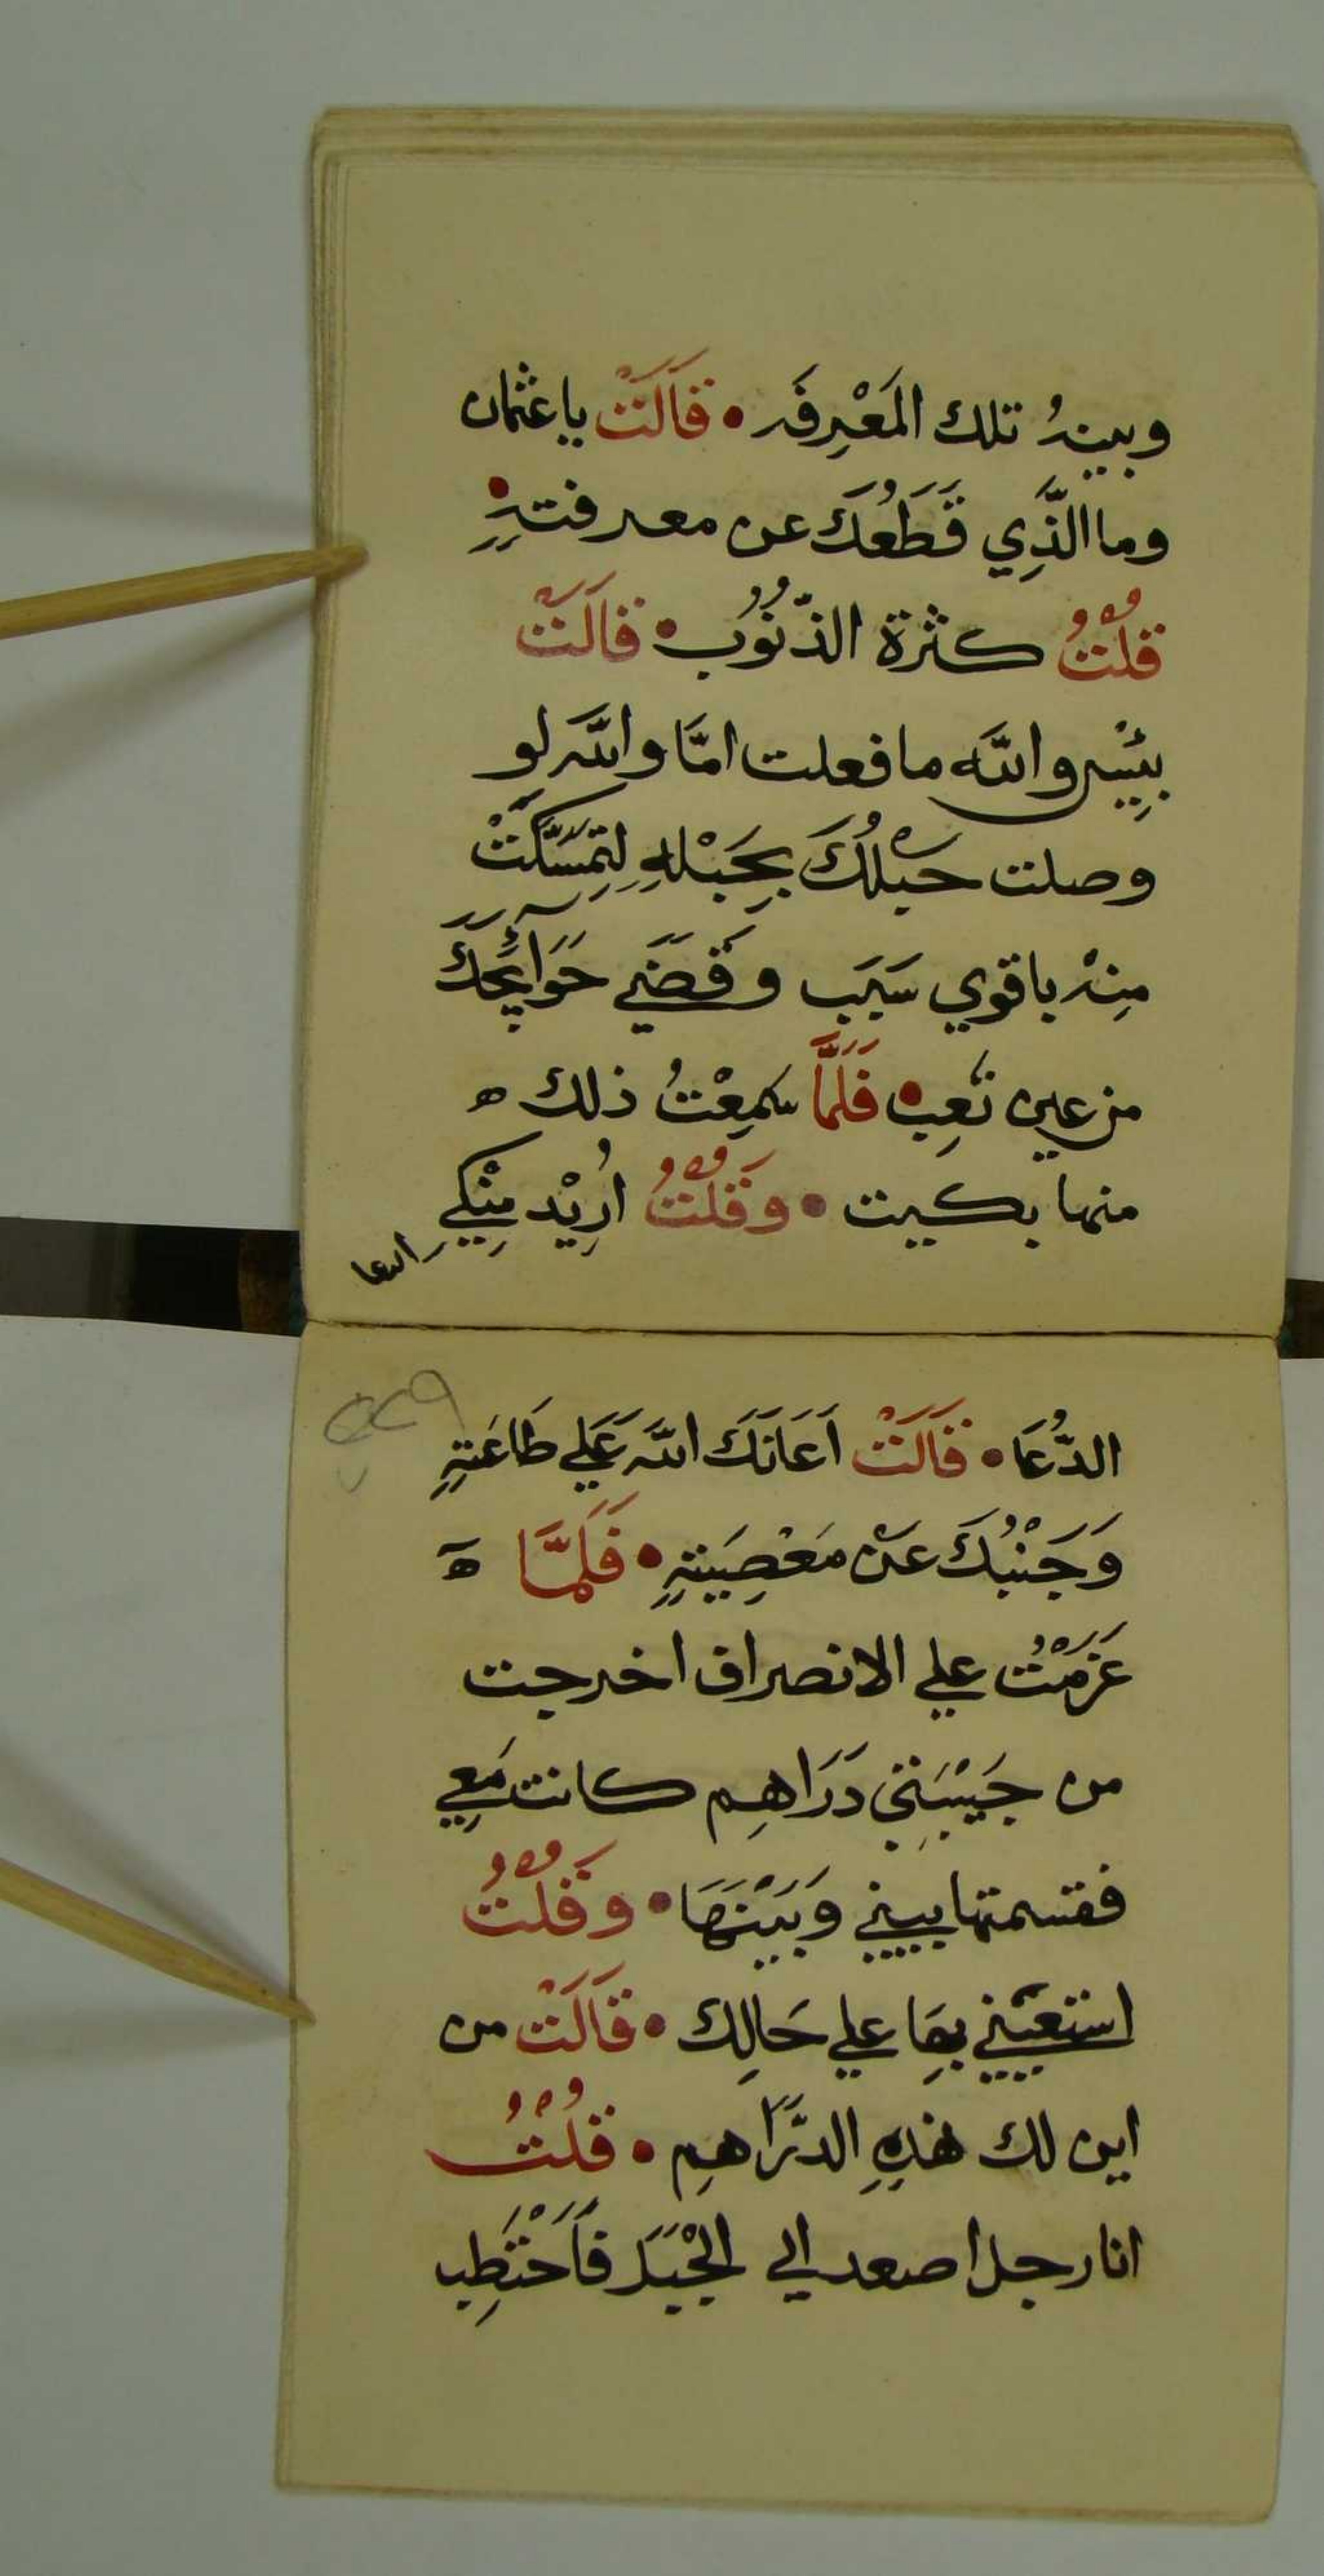 وبينهُ تلك المَعْرِفَه • قَالَتْ ياعثمان
وما الَّذِي قَطَعُكَ عن معرفتهِ •
قُلْتُ كثرة الذّنُوُب • قَالَتْ
بِئِيْس والله مافعلت امَّا والله لو
وصلت حَبْلُكَ بِحَبْلهِ لتِمَسَّكَتْ
مِنهْ باقوي سَبَب وقَضَي حَوَآئِجَكَ
من عين تَعِب • فَلَمَّا سَمِعْتُ ذلك ه
منها بكيت • وَقُلْتُ اُرِيْد مِنْكِي
الدعا
الدُّعَا • قَالَتْ اَعَانَكَ الله عَلي طَاعَتهِ
وَجَنْبُكَ عَنْ مَعْصِيَتهِ • فَلَمَّا ه
عَزمْتُ علي الانصراف اخرجت
من جَيْبَتِي دَرَاهِم كانت مَعِي
فقسمتها بيني وَبَيْنَهَا • وَقُلْتُ
استعيني بِهَا علي حَالِك • قَالَتْ من
اين لك هَذِهِ الدَّرَاهِم • قُلْتُ
انا رجل اصعد الي الجْبَل فَاَحْتَطِب